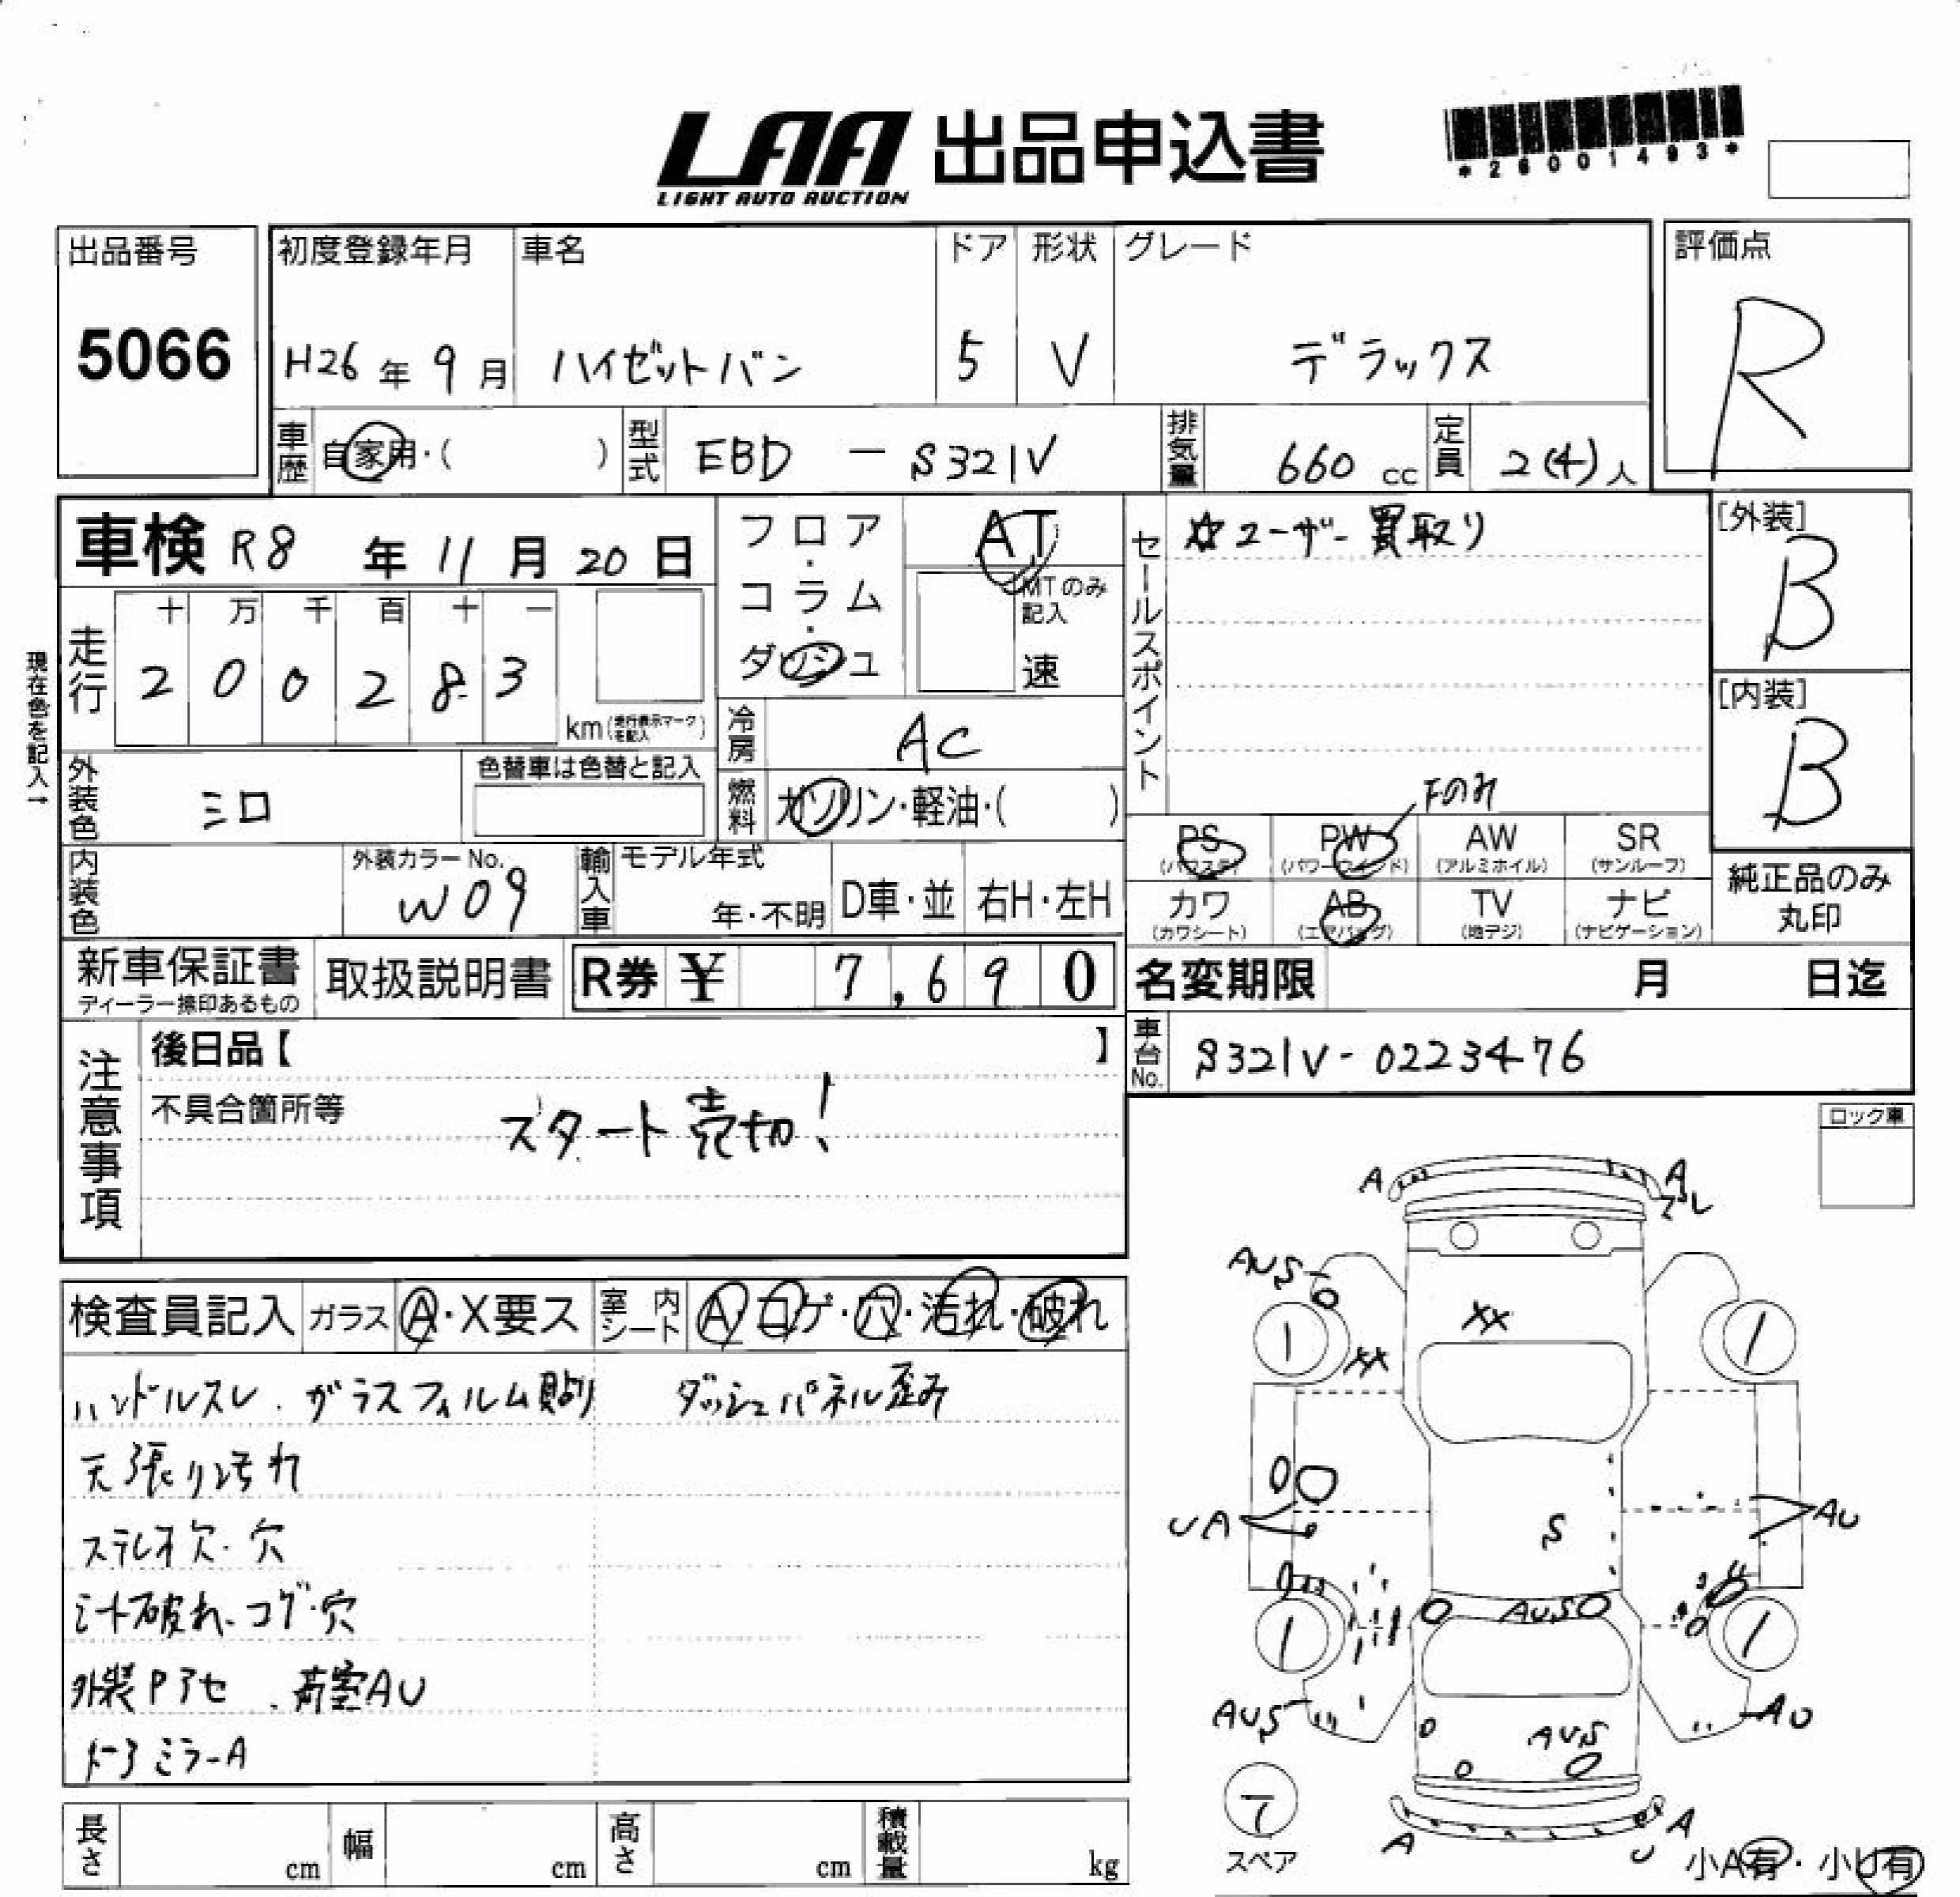 LAA 出品申込書
LIGHT AUTO AUCTION
*26001493*
出品番号
5066
初度登録年月 車名 ドア 形状 グレード
H26年9月 ハイゼットバン 5 V デラックス
評価点
R
車歴 自家用・( ) 型式 EBD - S321V 排気量 660cc 定員 2(4)人
車検 R8年11月20日
フロア・コラム・ダッシュ
AT
MTのみ記入
速
セールスポイント
☆ユーザー買取り
[外装]
B
[内装]
B
現在色を記入→
走行
十 万 千 百 十 一
2 0 0 2 8 3
km(走行表示マークを記入)
冷房 AC
燃料 ガソリン・軽油・( )
外装色 シロ
色替車は色替と記入
Fのみ
PS PW AW SR
(パワステ) (パワーウインド) (アルミホイル) (サンルーフ)
カワ AB TV ナビ
(カワシート) (エアバッグ) (地デジ) (ナビゲーション)
純正品のみ
丸印
内装色
外装カラーNo.
W09
輸入車 モデル年式
年・不明 D車・並 右H・左H
新車保証書
ディーラー捺印あるもの
取扱説明書 R券 ¥ 7,690
名変期限 月 日迄
車台No. S321V-0223476
注意事項
後日品【 】
不具合箇所等
スタート売切!
ロック車
検査員記入 ガラス A・X要ス 室内シート A・コゲ・穴・汚れ・破れ
ハンドルスレ. ガラスフィルム貼り ダッシュパネル歪み
天張り汚れ
ステレオ欠・穴
シート破れ・コゲ・穴
外装Pアセ. 荷室AU
ドアミラーA
A A
AUS
XX
XX
1 1
UA S AU
AUS
1 1
AUS AUS AU
A A
U
スペア
小A有・小U有
長さ cm 幅 cm 高さ cm 積載量 kg